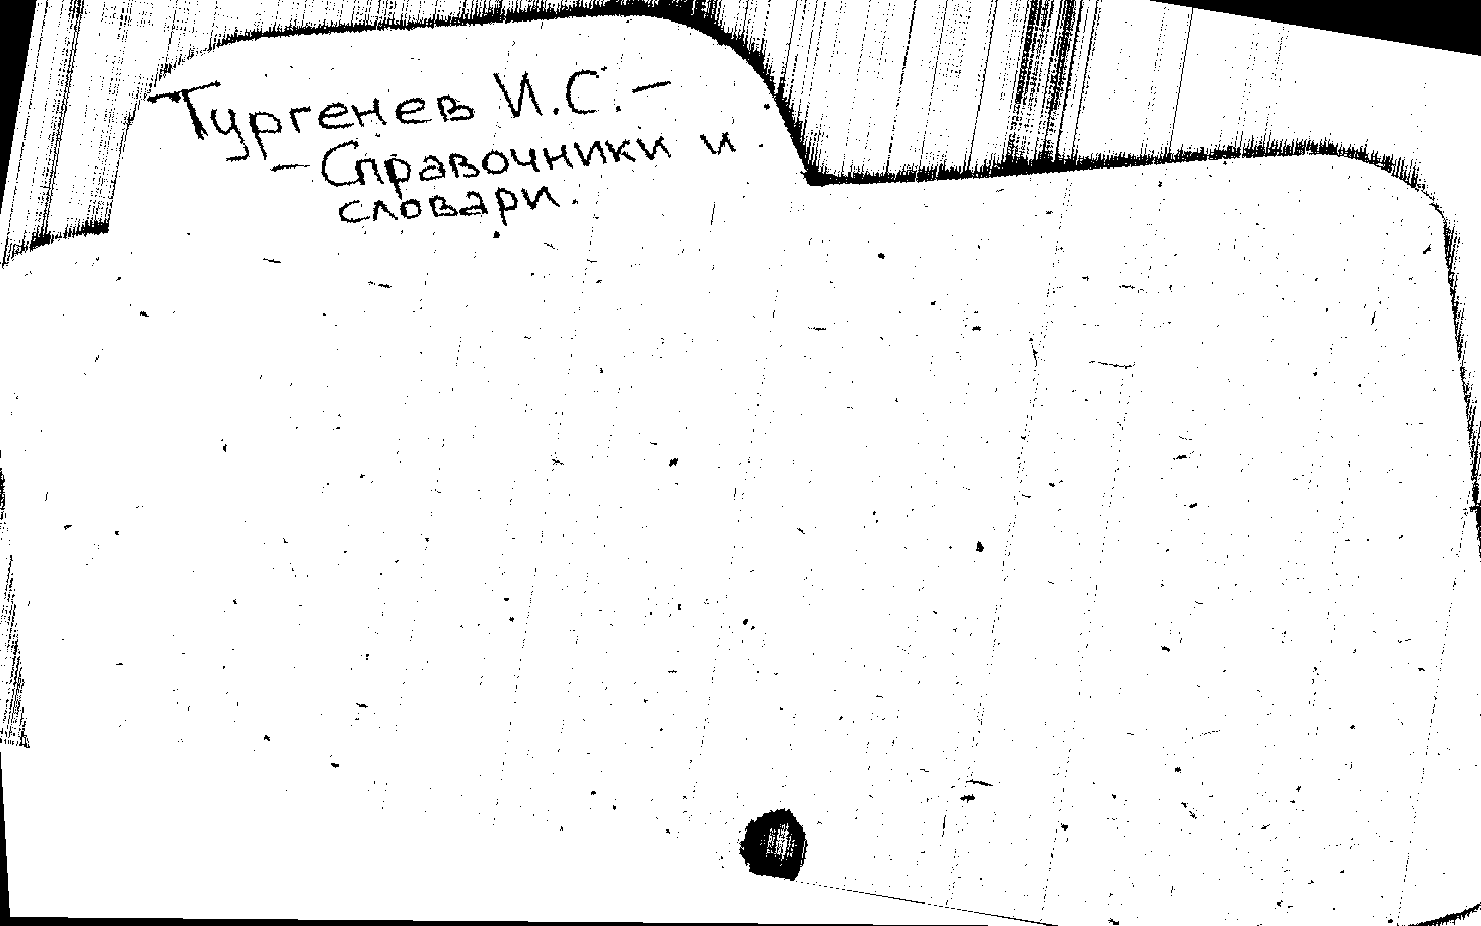 Тургенев И.С. –
– Справочники и
словари.